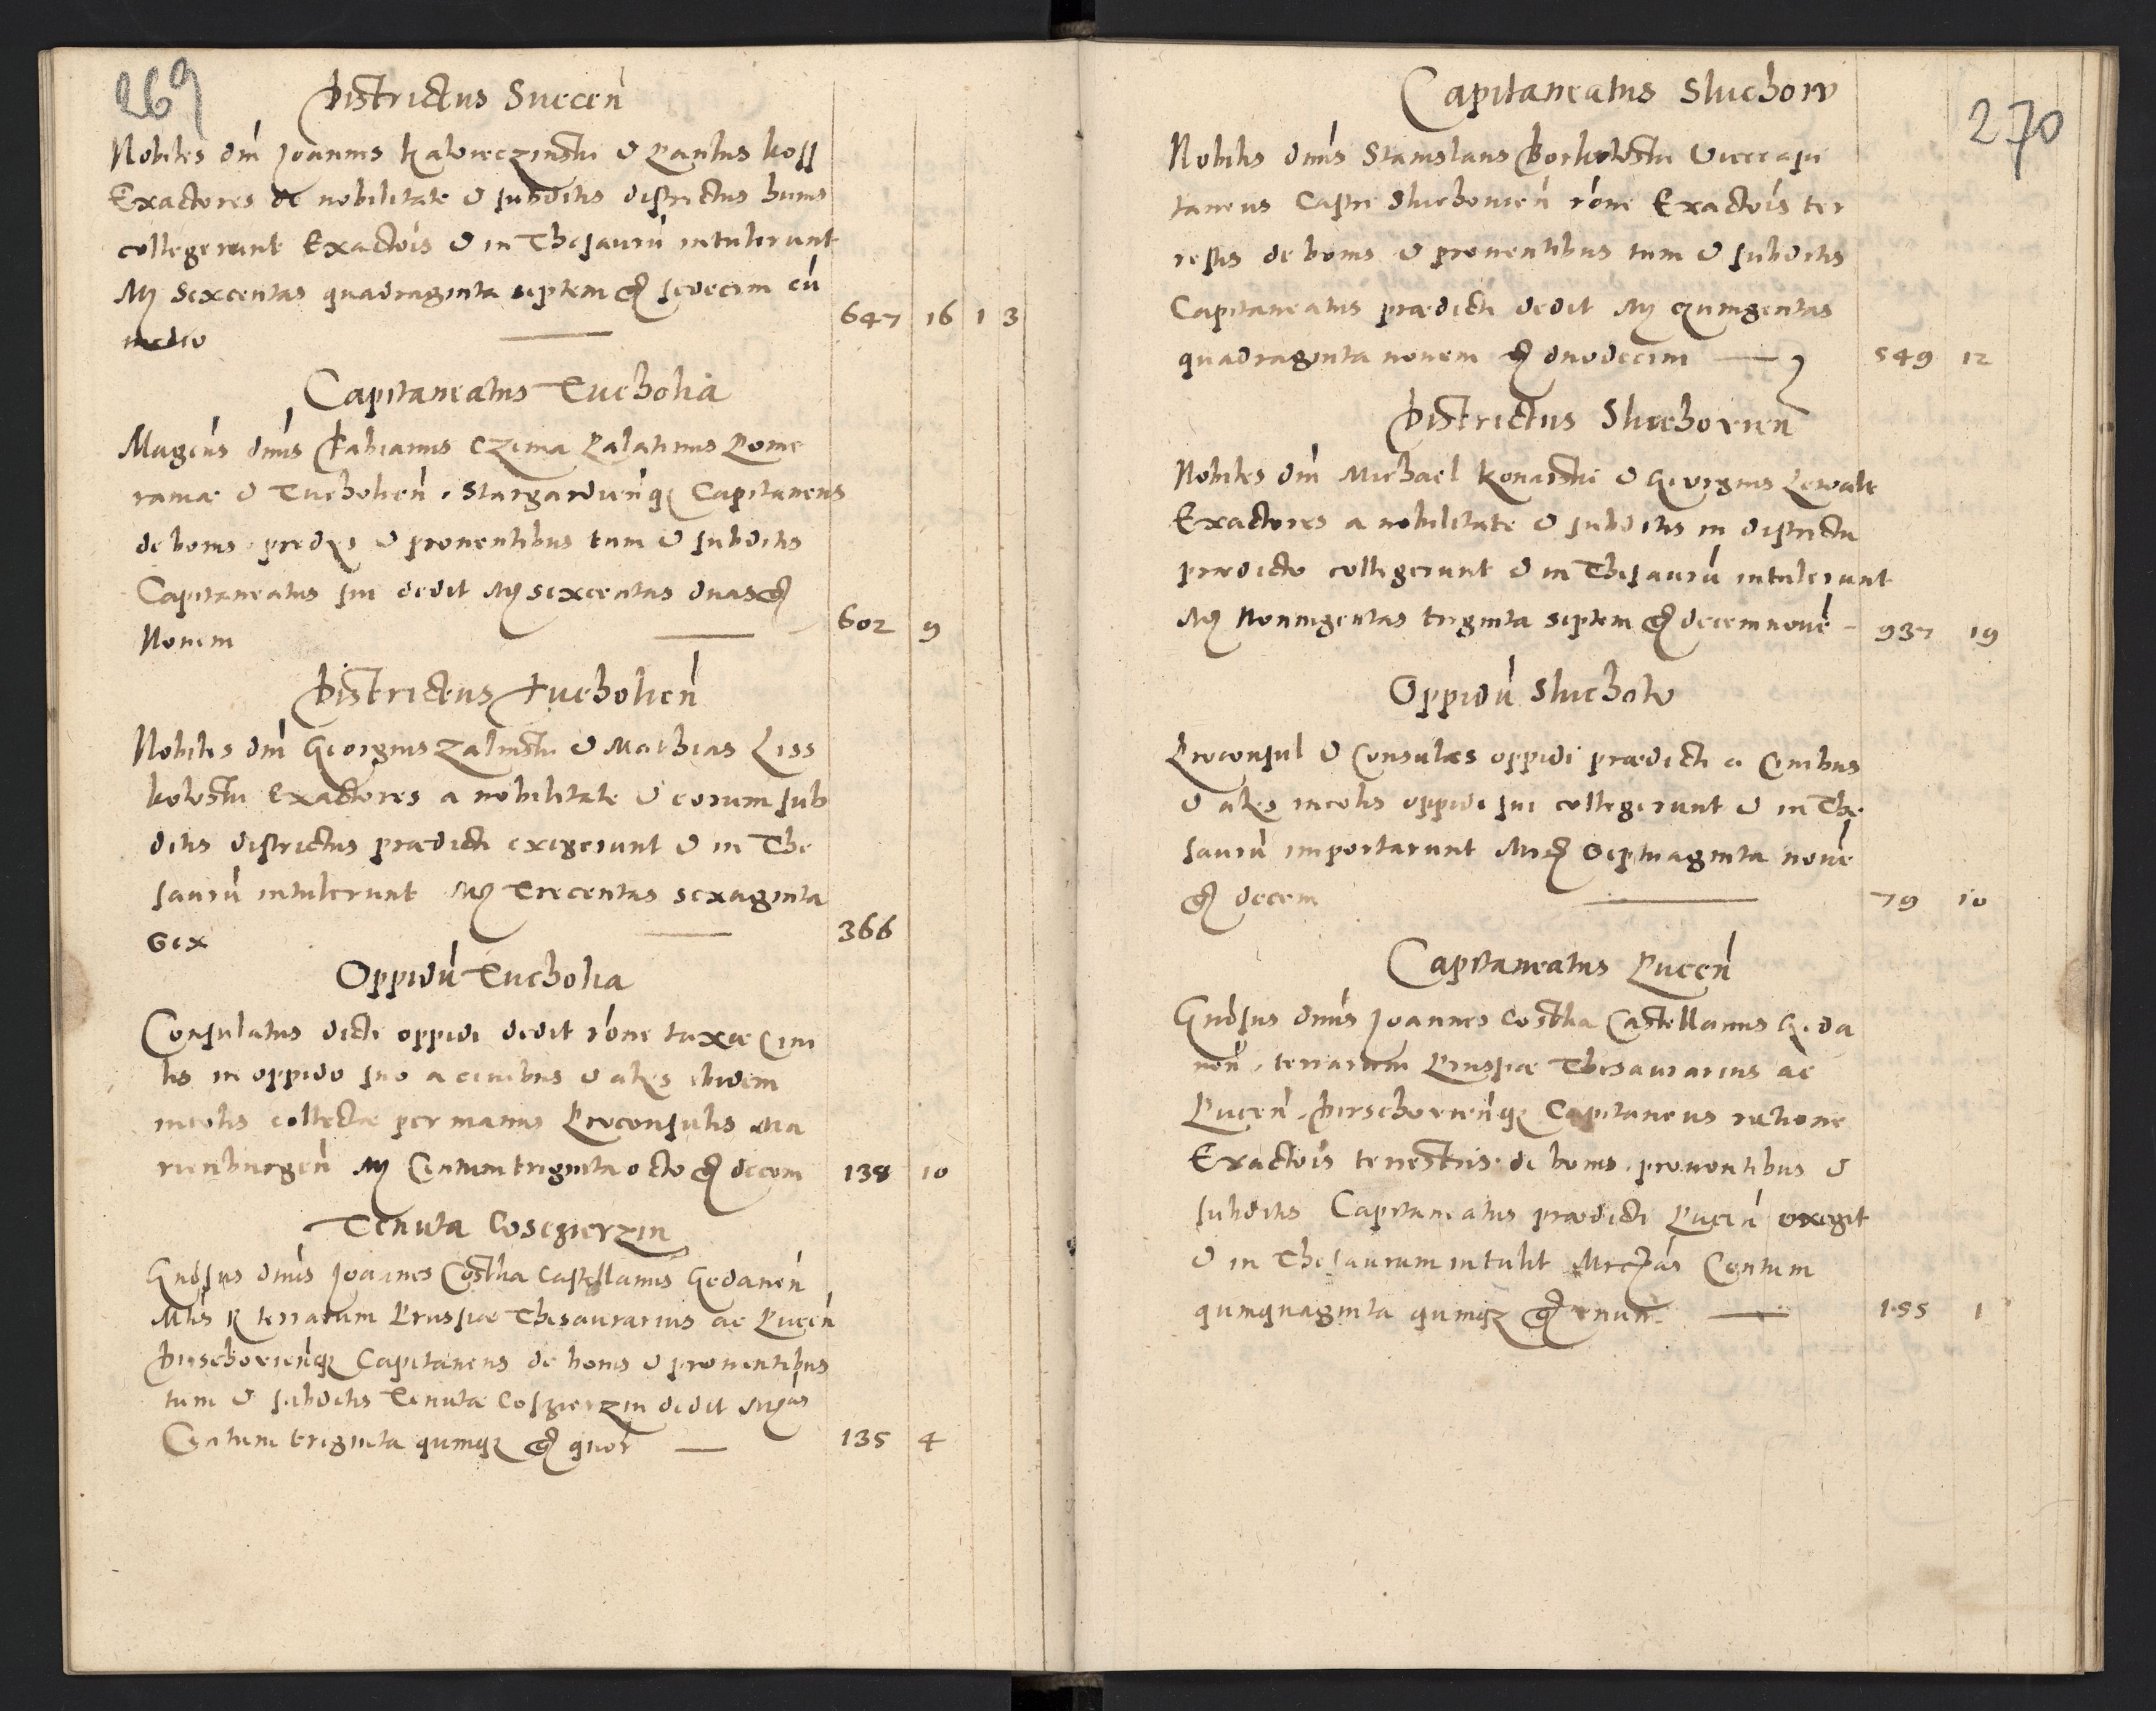 269
Districtus Suecen̄
Nobiles dn̄i Joannes Kalweczinski & Paulus Koss
Exactores de nobilitate & subditis districtus huius
collegerunt Exactōis & in Thesaurū intulerunt
Mr̄ Sexcentas quadraginta septem gr̄ sedecim cū
medio 647 16 1 3
Capitaneatus Tucholia
Magcūs dnūs Fabianus Czema Palatinus Pome
raniæ & Tucholien̄. Stargardien̄q; Capitaneus
de bonis prædijs & prouentibus tum & subditis
Capitaneatus sui dedit Mr̄ sexcentas duas gr̄
Nouem 602 9
Districtus Tucholien̄
Nobiles dn̄i Georgius Zalinski & Mathias Liss
kowski Exactores a nobilitate & eorum sub
ditis districtus prædicti exegerunt & in The
saurū intulerunt Mr̄ Trecentas sexaginta
sex 366
Oppidū Tucholia
Consulatus dicti oppidi dedit rōne taxæ Ciui
lis in oppido suo a ciuibus & alijs ibidem
incolis collectæ per manus Proconsulis Ma
rienburgen̄ Mr̄ Centum triginta octo gr̄ decem 138 10
Tenuta Coscgierzin
Gnōsus dnūs Joannes Costka Castellanus Gedanen̄
Mtis R terrarum Prussiæ Thesaurarius ac Pucen̄
Dirschouien̄q; Capitaneus de bonis & prouentibus
tum & subditis Tenutæ Cosgierzin dedit Mrcas
Centum triginta quinq; gr̄ quor 135 4
270
Capitaneatus Sluchow
Nobilis dnūs Stanislaus Borkowski Vicecapi
taneus Castri Sluchouien̄ rōne Exactōis ter
restis de bonis & prouentibus tum & subditis
Capitaneatus prædicti dedit Mr̄ quingentas
quadraginta nouem gr̄ duodecim 549 12
Districtus Sluchouien̄
Nobiles dn̄i Michael Konarski & Georgius Lewalt
Exactores a nobilitate & subditis in districtu
prædicto collegerunt & in Thesaurū intulerunt
Mr̄ Noningentas triginta septem gr̄ decem nouē 937 19
Oppidū Sluchow
Proconsul & Consules oppidi prædicti a Ciuibus
& alijs incolis oppidi sui collegerunt & in The
saurū importarunt Mr̄ Septuaginta nouē
gr̄ decem 79 10
Capitaneatus Pucen̄
Gnōsus dnūs Joannes Costka Castellanus Geda
nen̄. terrarum Prussiæ Thesaurarius ac
Pucen̄. Dirschouien̄q; Capitaneus ratione
Exactōis terrestris de bonis prouentibus &
subditis Capitaneatus prædicti Pucen̄ exegit
& in Thesaurum intulit Mrcas Centum
quinquaginta quinq; gr̄ unū 155 1